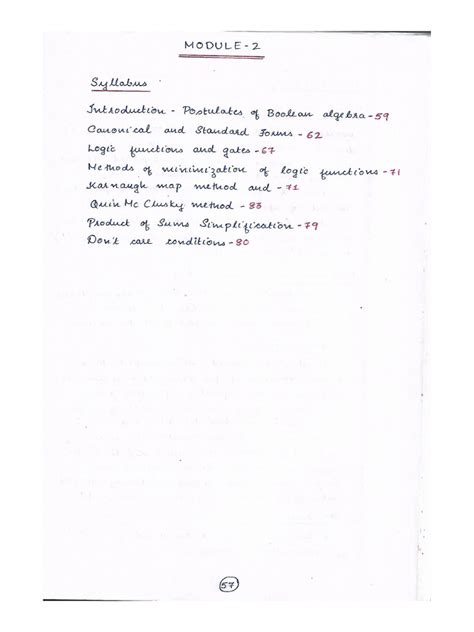 MODULE-2
Syllabus
Introduction - Postulates of Boolean algebra-59
Canonical and Standard Forms - 62
Logic functions and gates - 67
Methods of minimization of logic functions - 71
Karnaugh map method and - 71
Quin Mc Clusky method - 83
Product of Sums Simplification - 79
Don't care conditions - 80
57